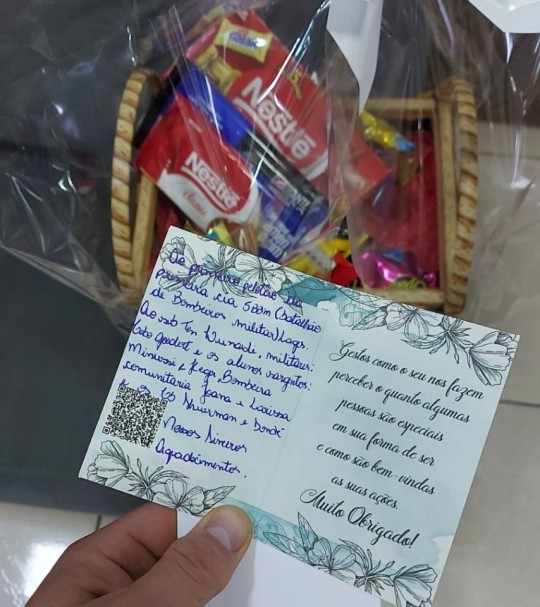 Nestlé
Nestlé
Classic
Ao primeiro pelotão da
primeira cia 5BBM (batalhão
de Bombeiros militar) Lages.
Ao sub Ten militares:
e os alunos sargentos:
Minussi e Bombeira
comunitária Joana e Larissa
e
Nossos Sinceros
Agradecimentos.
Gestos como o seu nos fazem
perceber o quanto algumas
pessoas são especiais
em sua forma de ser
e como são bem-vindas
as suas ações.
Muito Obrigado!